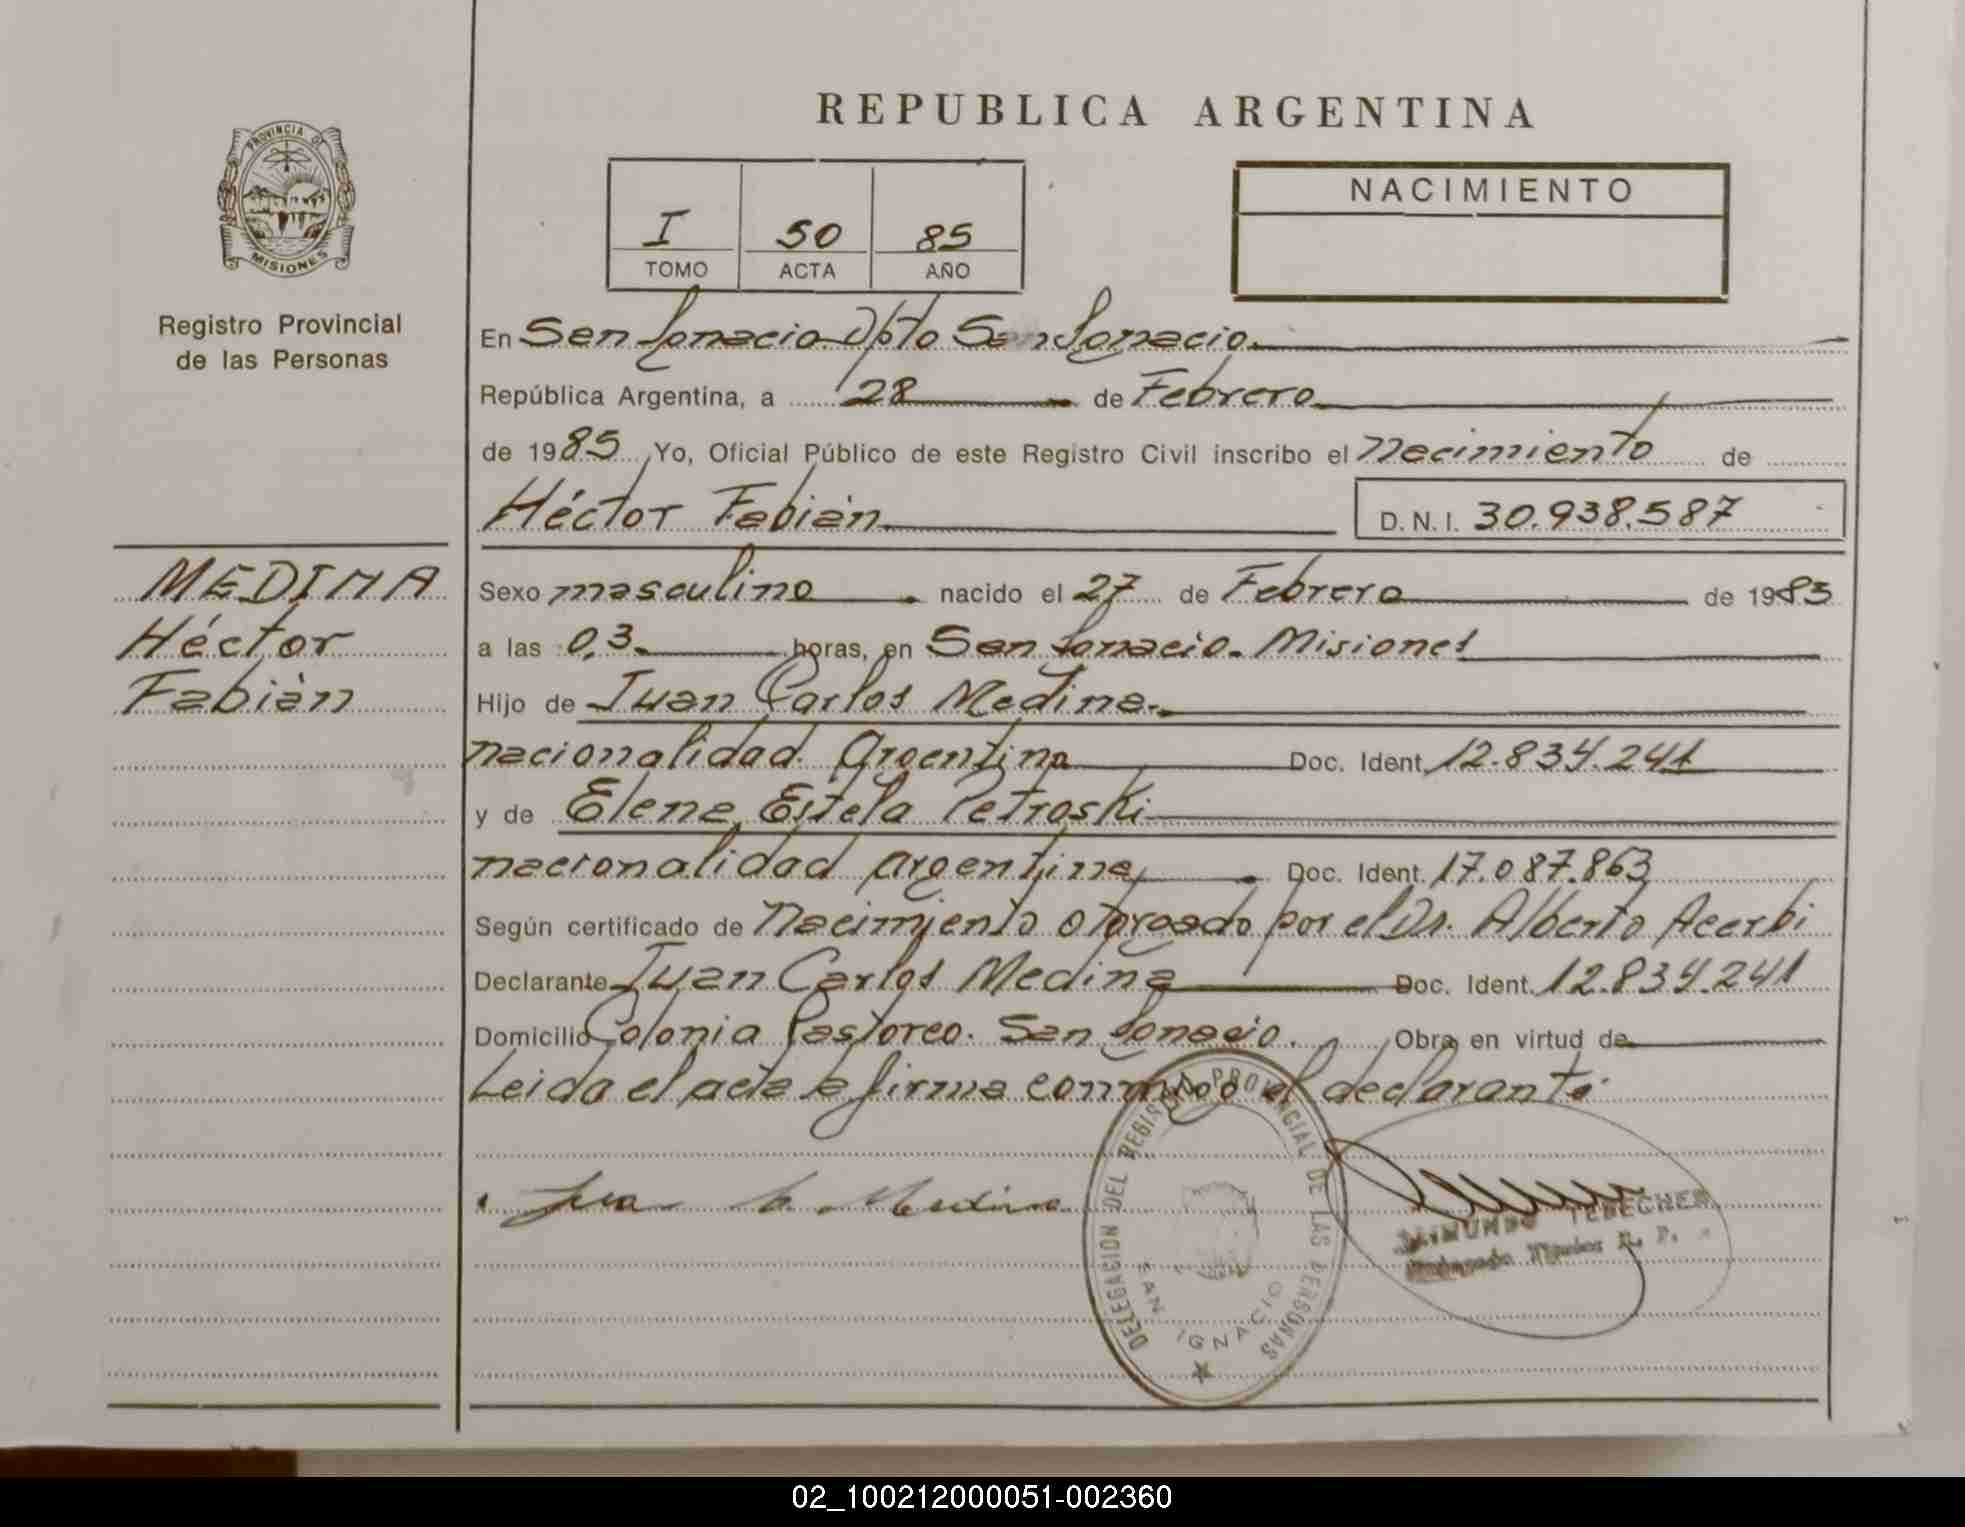 REPUBLICA ARGENTINA
PROVINCIA DE MISIONES
Registro Provincial
de las Personas
I 50 85
TOMO ACTA AÑO
NACIMIENTO
En San Ignacio Dpto San Ignacio
República Argentina, a 28 de Febrero
de 1985 Yo, Oficial Público de este Registro Civil inscribo el Nacimiento de
Héctor Fabián D.N.I. 30.938.587
MEDINA
Héctor
Fabián
Sexo masculino nacido el 27 de Febrero de 1983
a las 0,3 horas, en San Ignacio. Misiones
Hijo de Juan Carlos Medina.
nacionalidad Argentina Doc. Ident. 12.834.241
y de Elena Estela Petroski
nacionalidad argentina Doc. Ident. 17.087.863
Según certificado de Nacimiento otorgado por el Dr. Alberto Acerbi
Declarante Juan Carlos Medina Doc. Ident. 12.834.241
Domicilio Colonia Pastoreo. San Ignacio. Obra en virtud de
Leida el acta la firma conmigo el declarante.
Juan C. Medina
DELEGACION DEL REGISTRO PROVINCIAL DE LAS PERSONAS
SAN IGNACIO
RAIMUNDO
R. P.
02_100212000051-002360